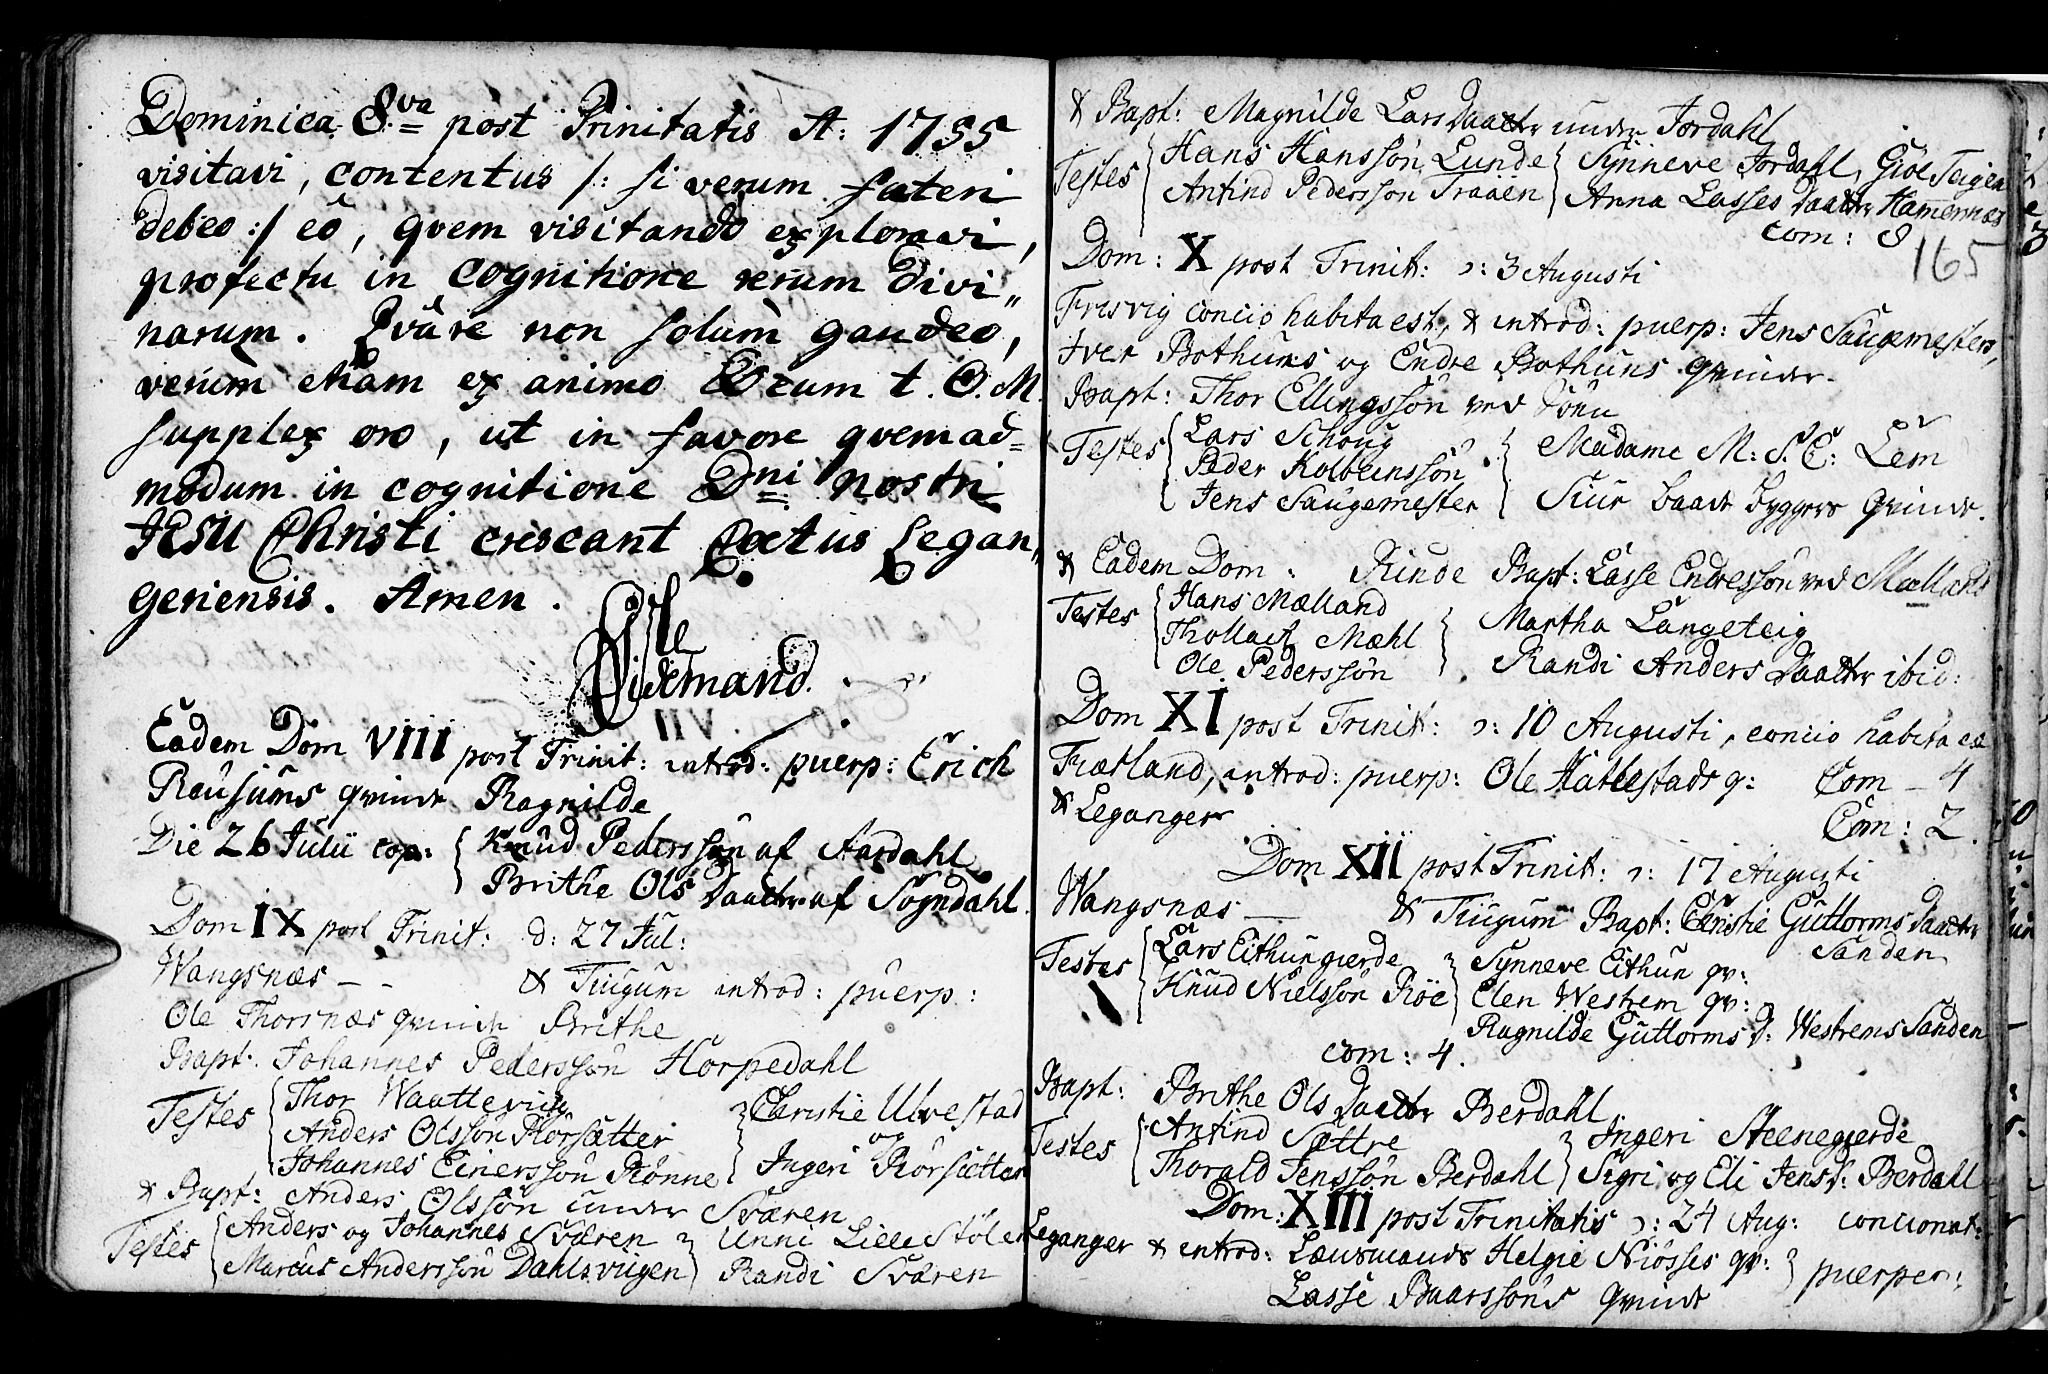 Dominica 8va post Trinitatis A: 1755
visitavi, contentus /: si verum fateri
debeo :/ eô, qvem visitando exploravi,
profectu in cognitione rerum divi„
narum. Qváre non solùm gaudeo,
verùm etiam ex animo Deum t. O. M.
supplex oro, ut in favore qvemad=
modum in cognitione Dni nostri
JESU Christi crescant Coetus Legan„
geriensis. Amen.
Eadem Dom VIII post Trinit: introd: puerp: Erich
Reusums qvinde Ragnilde
Die 26 Julii cop: Knud Pedersøn af Aardahl
Brithe Ols Daatter af Sogndahl.
Dom IX post Trinit: d: 27 Jul:
Wangsnæs - - & Tiugum introd: puerp:
Ole Thorsnæs qvinde Brithe
Bapt. Johannes Pederssøn Horpedahl
Testes Thor Waattevig Christie Ulvestad
Anders Olssøn Rørsætter og
Johannes Einerssøn Rønne Ingeri Rørsætter
& Bapt: Anders Olssøn under Sværen
Testes Anders og Johannes Sværen Unni Lille Stølen
Marcus Anderssøn Dahlsviigen Randi Sværen
& Bapt: Magnilde Lars Daatter under Jordahl
Testes Hans Hanssøn Lunde Synneve Jordahl, Giøe Teigen
Antind Pederssøn Traaen Anna Lasses Daatter Hamernæs
com: 8
165
Dom: X post Trinit: ɔ: 3 Augusti
Fresvig concio habita est, & introd: puerp: Jens Saugemesters,
Iver Bothuns og Endre Bothuns qvinder.
Bapt: Thor Ellingssøn ved
Testes Lars Schoug Madame M: S. E: Lem
Peder Kolbeinssøn
Jens Saugemester Siur baadebyggers qvinde.
& Eadem Dom: Rinde Bapt: Lasse Endressøn ved Mælland
Testes Hans Mælland Martha Langeteig
Thollact Mæhl
Ole Pederssøn Randi Anders Daatter ibid:
Dom XI post Trinit: ɔ: 10 Augusti, concio habita est
Fiærland, introd: puerp: Ole Hatlestads q: Com - 4
& Leganger Com: 2.
Dom XII post Trinit: ɔ: 17 Augusti
Wangsnæs — & Tiugum Bapt: Christie Guttorms Daatter
Sanden
Testes Lars Eithungierde Synneve Eithun qv:
Knud Nielssøn Røe Elen Westrem qv:
Ragnilde Guttorms D: Westrems Sanden
com: 4.
Bapt: Brithe Ols Daatter Berdahl
Testes Antind Sættre Ingeri Steenegierde
Thorald Jenssøn Berdahl Sigri og Eli Jens D: Berdahl
Dom: XIII post Trinitatis ɔ: 24 Aug: concionat:
Leganger & introd: Lænsmands Helgie Niøsses qv: puerper:
Lasse Baarssøns qvinde